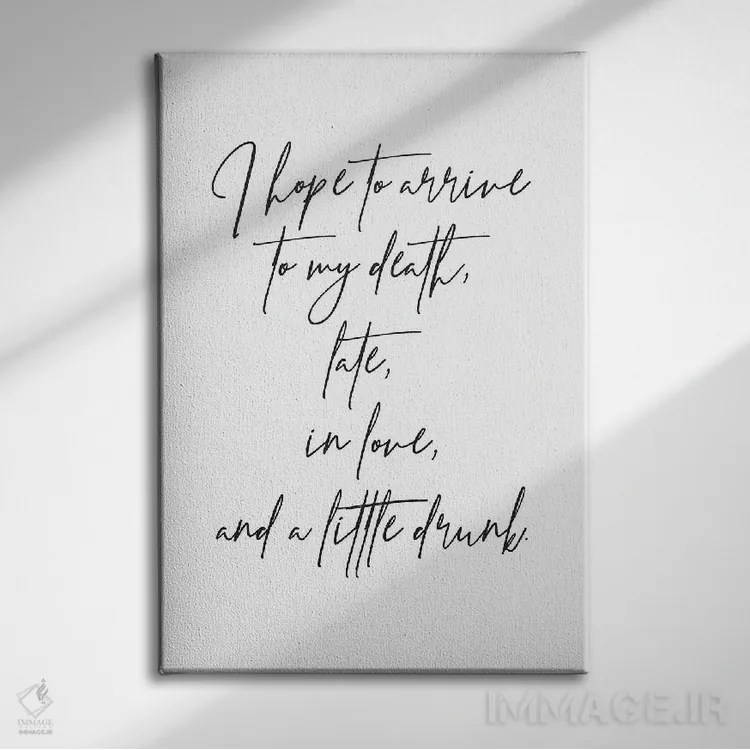 I hope to arrive
to my death,
late,
in love,
and a little drunk.
IMMAGE
IMMAGE.IR
IMMAGE.IR